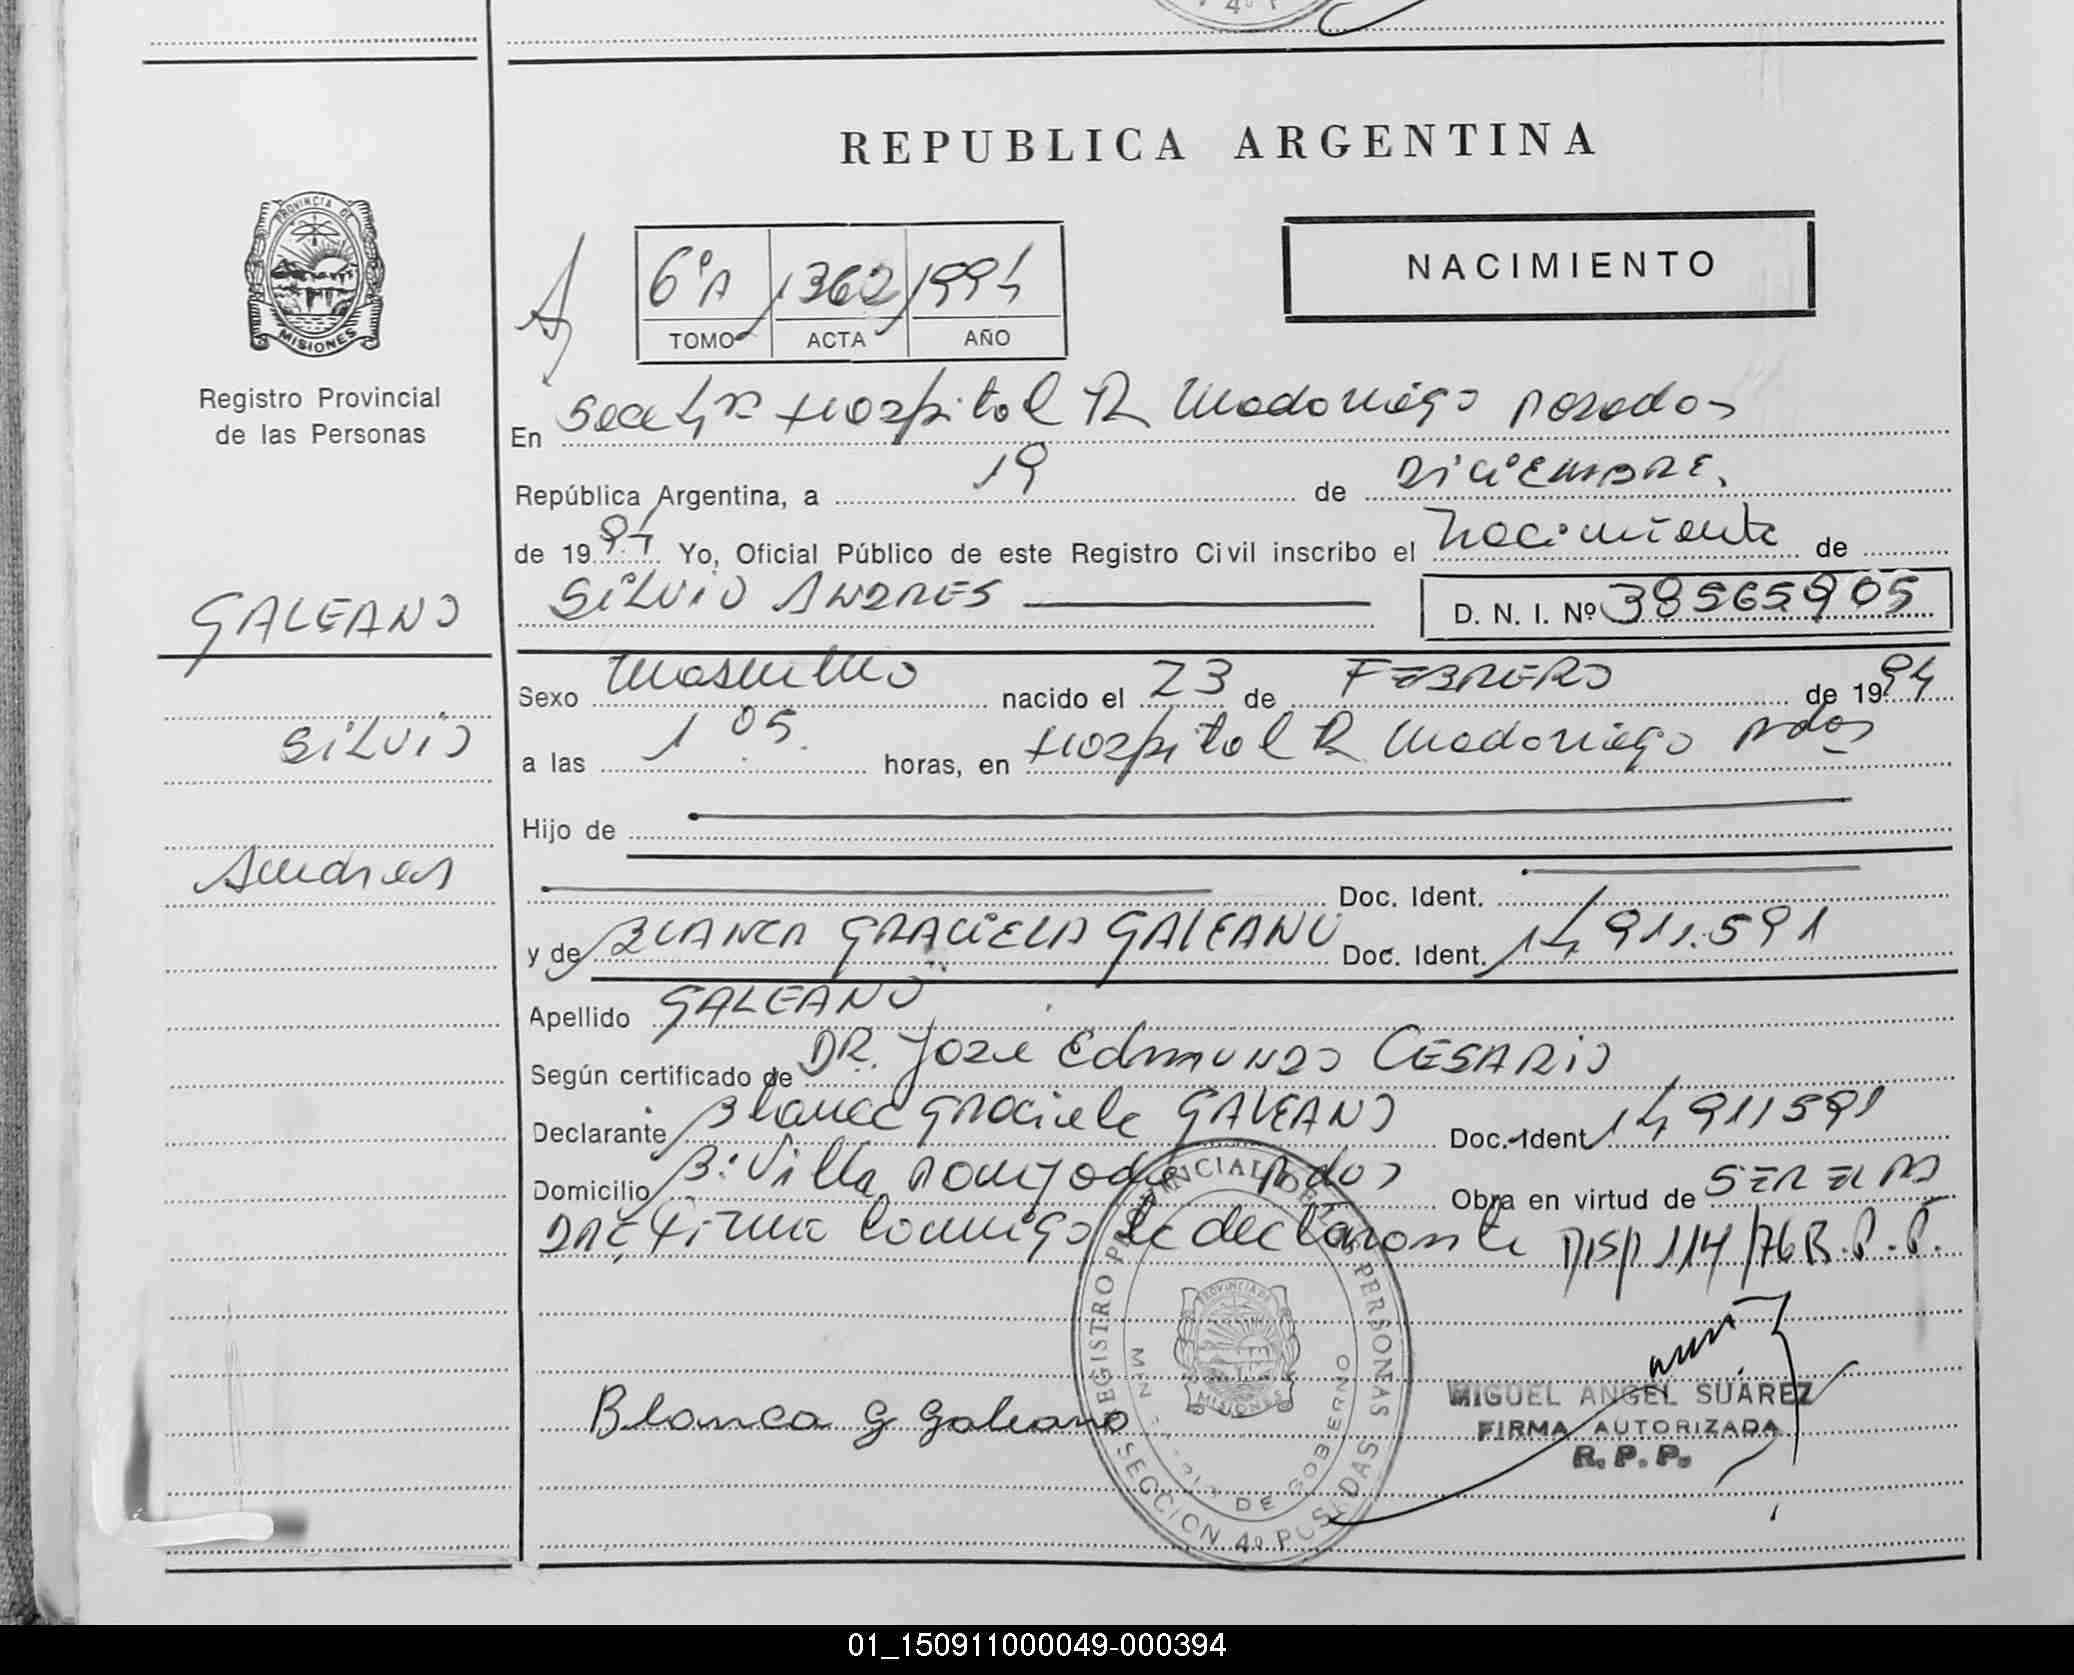 REPUBLICA ARGENTINA
PROVINCIA DE
MISIONES
Registro Provincial
de las Personas
6ºA 1362 1994
TOMO ACTA AÑO
NACIMIENTO
En Secc 4ta Hospital R Madariaga posadas
República Argentina, a 19 de DICIEMBRE.
de 1994 Yo, Oficial Público de este Registro Civil inscribo el Nacimiento de
SILVIO ANDRES D. N. I. Nº 38565905
GALEANO
Sexo Masculino nacido el 23 de FEBRERO de 1994
SILVIO
a las 1 05. horas, en Hospital R Madariaga pdas
Hijo de
Andres
Doc. Ident.
y de BLANCA GRACIELA GALEANO Doc. Ident. 14911.591
Apellido GALEANO
Según certificado de DR. Jose Edmundo CESARIO
Declarante Blanca Graciela GALEANO Doc. Ident 14911591
Domicilio B: Villa Pdas Obra en virtud de SER ELLA
firma conmigo la declarante DISP 114/76 R.P.P.
REGISTRO PROVINCIAL DE LAS PERSONAS
PROVINCIA DE
MISIONES
DE GOBIERNO
SECCION 4º POSADAS
Blanca G Galeano
MIGUEL ANGEL SUÁREZ
FIRMA AUTORIZADA
R. P. P.
01_150911000049-000394